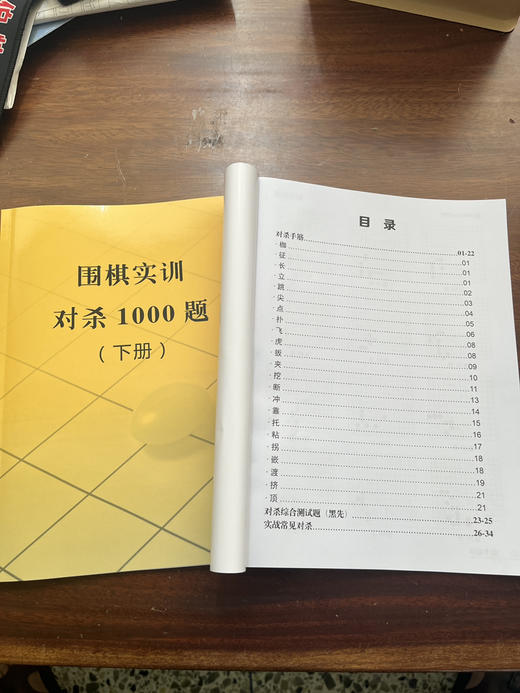 围棋实训
对杀 1000 题
（下册）
目 录
对杀手筋 01-22
·枷 01
·征 01
·长 01
·立 02
·跳 03
·尖 04
·点 05
·扑 06
·飞 08
·虎 08
·扳 09
·夹 10
·挖 11
·断 13
·冲 14
·靠 15
·托 16
·粘 17
·拐 18
·嵌 18
·渡 19
·挤 21
·顶 21
对杀综合测试题（黑先） 23-25
实战常见对杀 26-34